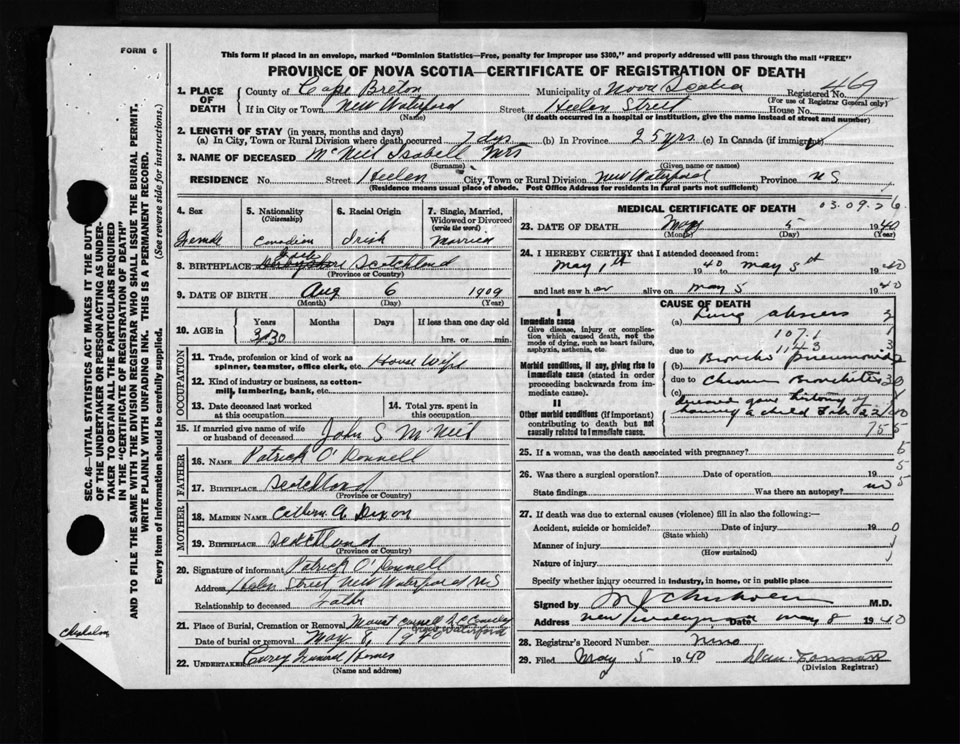 FORM 6
This form if placed in an envelope, marked "Dominion Statistics—Free, penalty for improper use $300," and properly addressed will pass through the mail "FREE"
PROVINCE OF NOVA SCOTIA—CERTIFICATE OF REGISTRATION OF DEATH
1. PLACE OF DEATH
County of Cape Breton Municipality of Nova Scotia Registered No. 469
(For use of Registrar General only)
If in City or Town New Waterford Street Heelen Street House No.
(Name) (If death occurred in a hospital or institution, give the name instead of street and number)
2. LENGTH OF STAY (in years, months and days)
(a) In City, Town or Rural Division where death occurred 7 dys. (b) In Province 25 yrs. (c) In Canada (if immigrant)
3. NAME OF DECEASED McNeil Isabell Mrs
(Surname) (Given name or names)
RESIDENCE No. Street Heelen City, Town or Rural Division New Waterford Province NS
(Residence means usual place of abode. Post Office Address for residents in rural parts not sufficient)
4. Sex
Female
5. Nationality (Citizenship)
Canadian
6. Racial Origin
Irish
7. Single, Married, Widowed or Divorced (write the word)
Married
8. BIRTHPLACE Scotchland
(Province or Country)
9. DATE OF BIRTH Aug 6 1909
(Month) (Day) (Year)
10. AGE in Years Months Days If less than one day old
30 hrs. or min.
OCCUPATION
11. Trade, profession or kind of work as spinner, teamster, office clerk, etc. House Wife
12. Kind of industry or business, as cotton-mill, lumbering, bank, etc.
13. Date deceased last worked at this occupation
14. Total yrs. spent in this occupation
15. If married give name of wife or husband of deceased John S McNeil
FATHER
16. NAME Patrick O'Donnell
17. BIRTHPLACE Scotchland
(Province or Country)
MOTHER
18. MAIDEN NAME A Dixon
19. BIRTHPLACE Scotchland
(Province or Country)
20. Signature of informant Patrick O'Donnell
Address Heelen Street New Waterford NS
Relationship to deceased Father
21. Place of Burial, Cremation or Removal Mount Carmel New Waterford
Date of burial or removal May 8, 19
22. UNDERTAKER Curry Funeral Homes
(Name and address)
MEDICAL CERTIFICATE OF DEATH
03.09.26
23. DATE OF DEATH May 5 1940
(Month) (Day) (Year)
24. I HEREBY CERTIFY that I attended deceased from:
May 1st 1940 to May 5th 1940
and last saw her alive on May 5 1940
CAUSE OF DEATH
I
Immediate cause
Give disease, injury or complication which caused death, not the mode of dying, such as heart failure, asphyxia, asthenia, etc.
(a) Lung abscess
107.1
1143
due to
(b) Broncho pneumonia
Morbid conditions, if any, giving rise to immediate cause (stated in order proceeding backwards from immediate cause).
due to Chronic Bronchitis
(c)
history of having a child Feb 22/40
II
Other morbid conditions (if important) contributing to death but not causally related to immediate cause.
25. If a woman, was the death associated with pregnancy?
26. Was there a surgical operation? Date of operation 19
State findings Was there an autopsy? no
27. If death was due to external causes (violence) fill in also the following:—
Accident, suicide or homicide? Date of injury 19
(State which)
Manner of injury
(How sustained)
Nature of injury
Specify whether injury occurred in industry, in home, or in public place
Signed by M.D.
Address Date May 8 1940
28. Registrar's Record Number Nine
29. Filed May 5 1940 Dan
(Division Registrar)
SEC. 46—VITAL STATISTICS ACT MAKES IT THE DUTY OF THE UNDERTAKER OR PERSON ACTING AS UNDERTAKER TO OBTAIN ALL THE PARTICULARS REQUIRED IN THE "CERTIFICATE OF REGISTRATION OF DEATH" AND TO FILE THE SAME WITH THE DIVISION REGISTRAR WHO SHALL ISSUE THE BURIAL PERMIT.
WRITE PLAINLY WITH UNFADING INK. THIS IS A PERMANENT RECORD.
Every item of information should be carefully supplied. (See reverse side for instructions.)
Chisholm